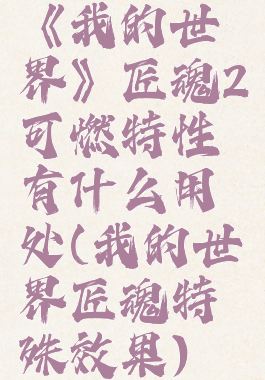 《我的世
界》匠魂2
可燃特性
有什么用
处(我的世
界匠魂特
殊效果)